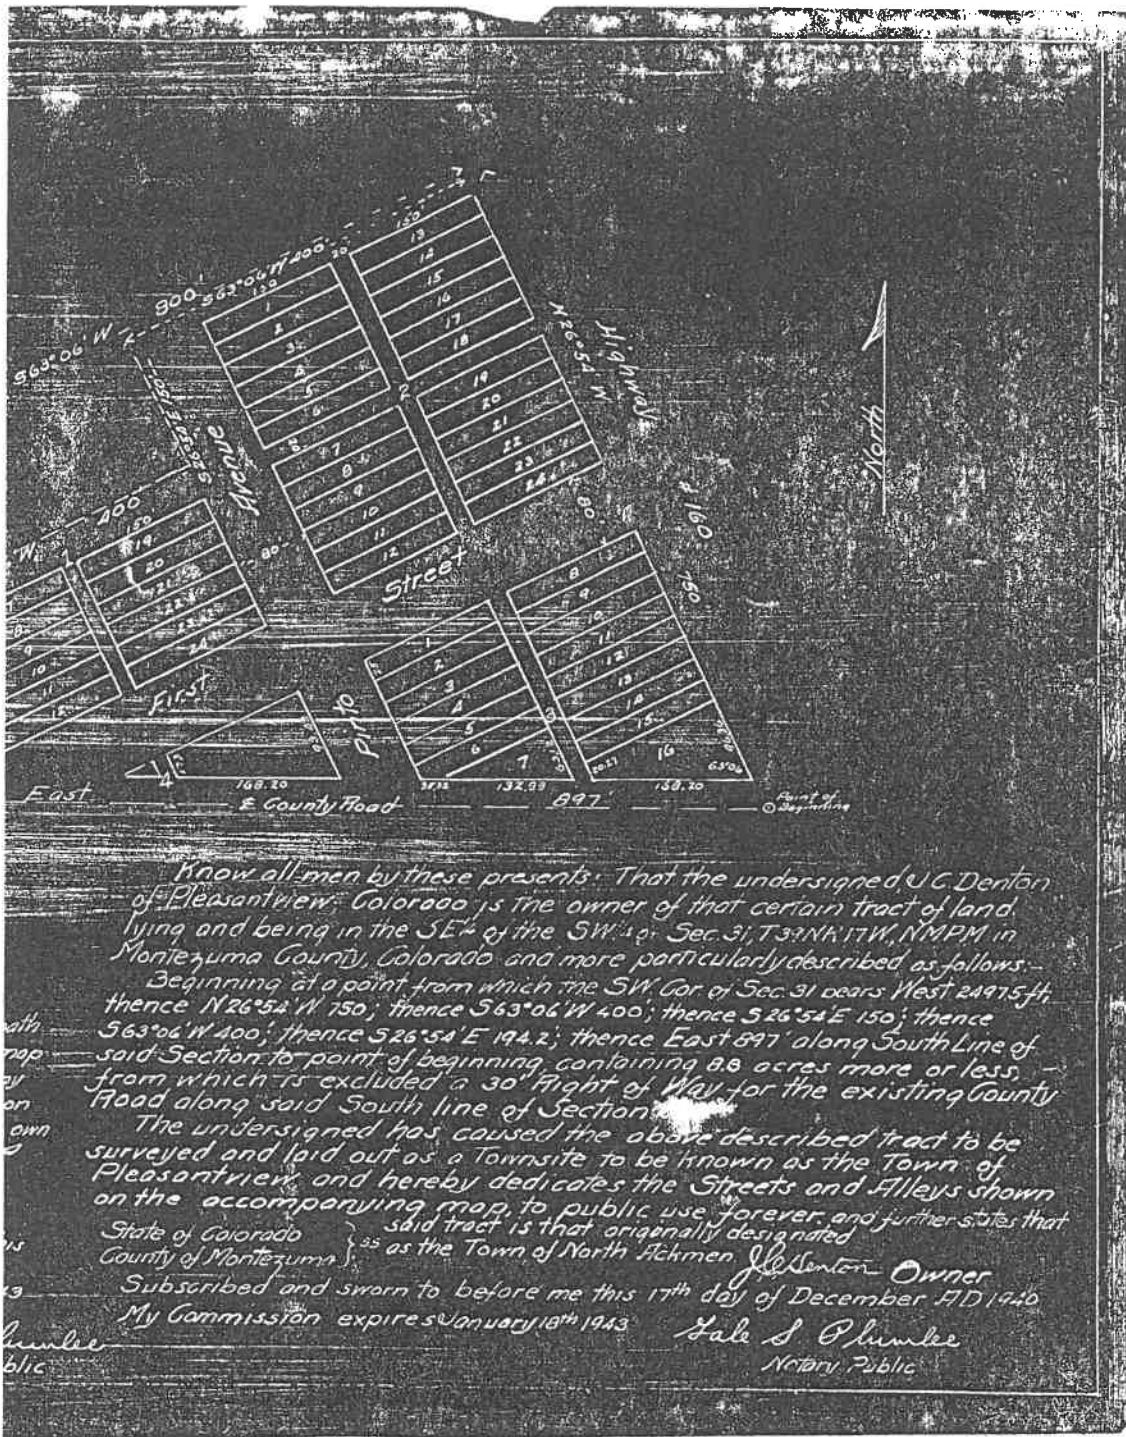 150
13
14
15
16
17
18
19
20
21
22
23
24
800'
S63°06'W 400'
20
130
1
2
3
4
5
6
20
7
8
9
10
11
12
2
S63°06'W
S26°54'E 150'
Avenue
N26°54'W
Highway
# 160
750
North
80'
80'
W.
400
150
19
20
21
22
23
24
1
8
9
10
11
12
First
Street
Piñto
1
2
3
4
5
6
7
3
8
9
10
11
12
13
14
15
16
20.27
63°06'
4
East
168.20
132.99
158.20
℄ County Road
897'
Point of
Beginning
Know all men by these presents: That the undersigned J C. Denton
of Pleasantview, Colorado is the owner of that certain tract of land
lying and being in the SE¼ of the SW¼ of Sec. 31, T39N R17W, NMPM in
Montezuma County, Colorado and more particularly described as follows:-
Beginning at a point from which the SW Cor. of Sec. 31 bears West 2497.5 ft,
thence N26°54'W 750'; thence S63°06'W 400'; thence S26°54'E 150'; thence
S63°06'W 400'; thence S26°54'E 194.2'; thence East 897' along South Line of
said Section to point of beginning, containing 8.8 acres more or less,
from which is excluded a 30' Right of Way for the existing County
Road along said South line of Section
The undersigned has caused the above described tract to be
surveyed and laid out as a Townsite to be known as the Town of
Pleasantview, and hereby dedicates the Streets and Alleys shown
on the accompanying map, to public use forever, and further states that
said tract is that originally designated
as the Town of North Ackmen J C Denton Owner
State of Colorado
County of Montezuma } SS
Subscribed and sworn to before me this 17th day of December AD 1940
My Commission expires January 18th 1943
Gale S. Plumlee
Notary Public
ath
map
ey
on
own
is
43
lumlee
blic